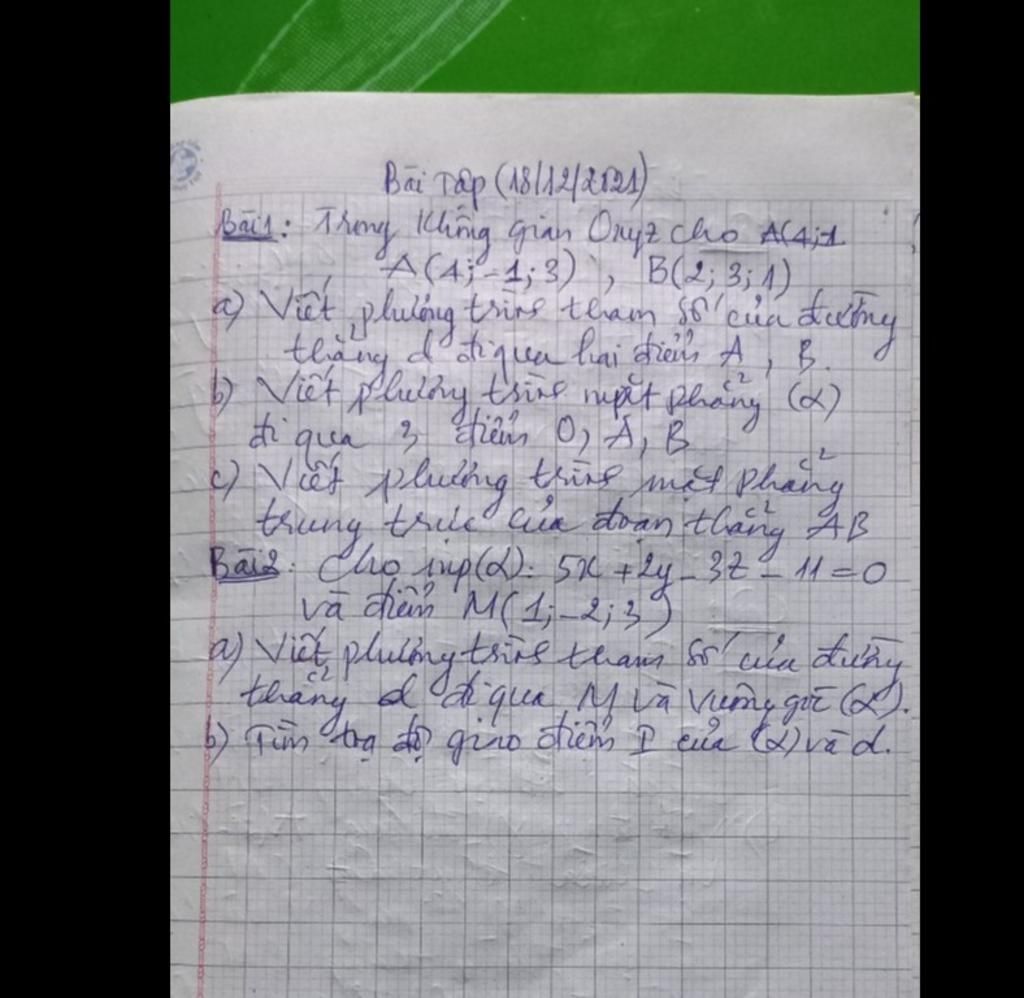 Bài Tập (18/12/2021)
Bài 1: Trong không gian Oxyz cho A(4;-1
A(4;-1;3), B(2;3;1)
a) Viết phương trình tham số của đường
thẳng d đi qua hai điểm A, B.
b) Viết phương trình mặt phẳng (α)
đi qua 3 điểm O, A, B
c) Viết phương trình mặt phẳng
trung trực của đoạn thẳng AB
Bài 2: Cho mp(α): 5x + 2y - 3z - 11 = 0
và điểm M(1;-2;3)
a) Viết phương trình tham số của đường
thẳng d đi qua M và vuông góc (α).
b) Tìm tọa độ giao điểm I của (α) và d.